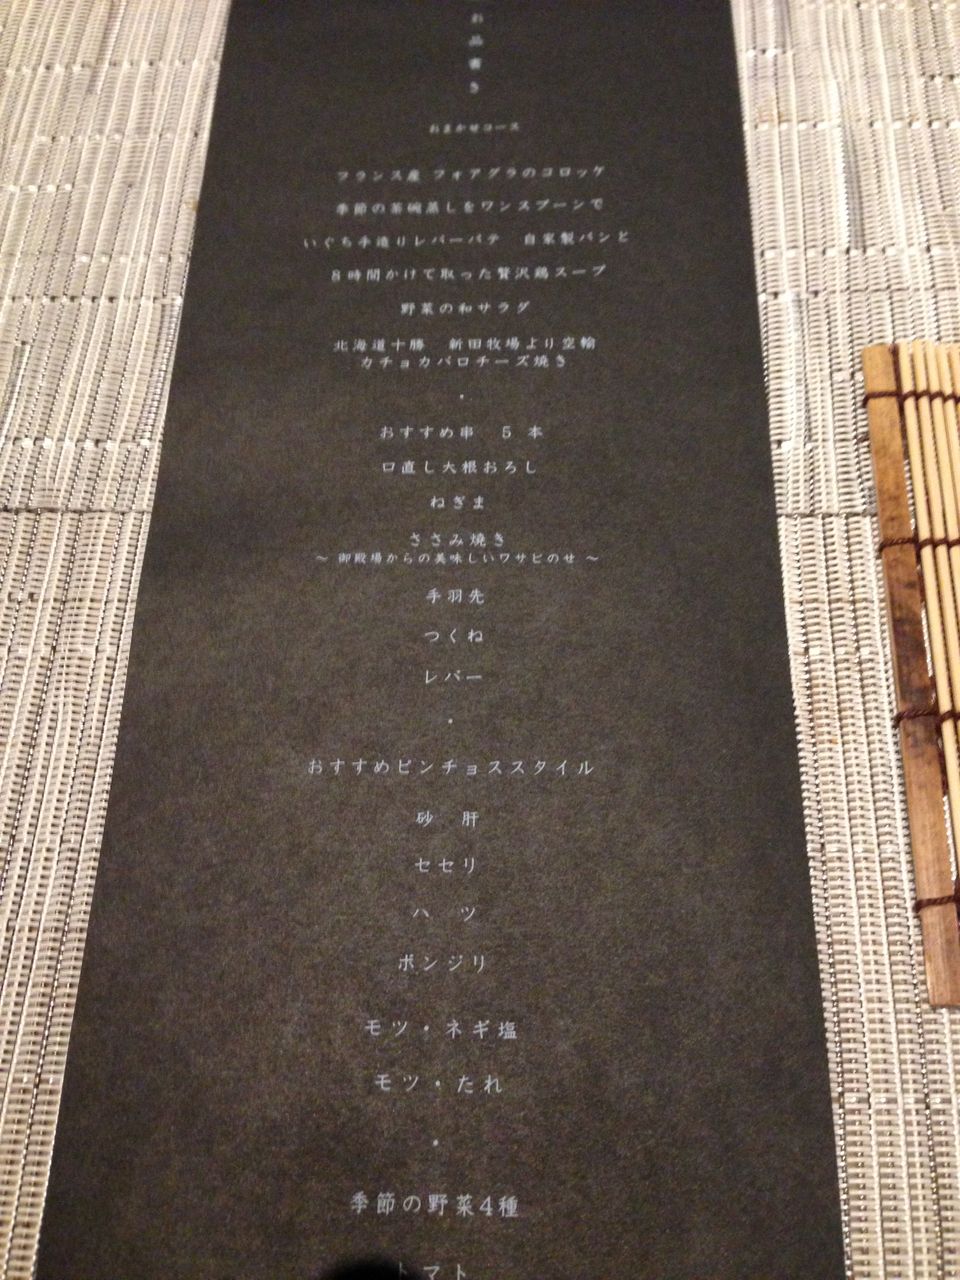 お品書き
おまかせコース
フランス産 フォアグラのコロッケ
季節の茶碗蒸しをワンスプーンで
いぐち手造りレバーパテ　自家製パンと
8時間かけて取った贅沢鶏スープ
野菜の和サラダ
北海道十勝　新田牧場より空輸
カチョカバロチーズ焼き
・
おすすめ串　5 本
口直し大根おろし
ねぎま
ささみ焼き
～ 御殿場からの美味しいワサビのせ ～
手羽先
つくね
レバー
・
おすすめピンチョススタイル
砂　肝
セセリ
ハ　ツ
ボンジリ
モツ・ネギ塩
モツ・たれ
・
季節の野菜4種
トマト